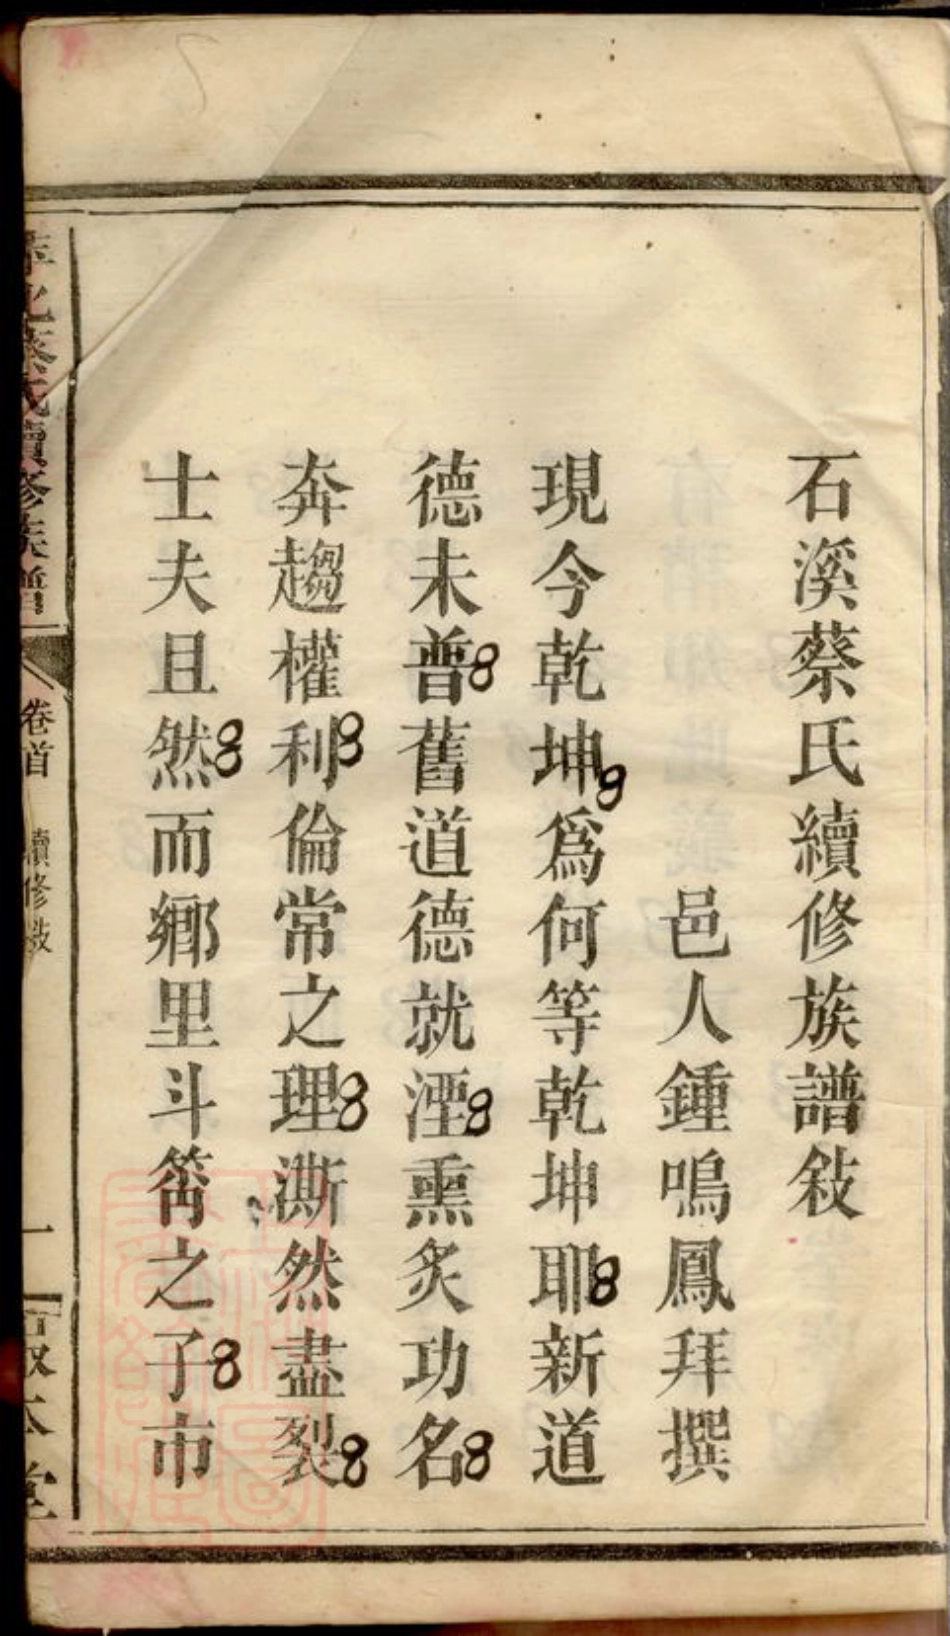 石溪蔡氏續修族譜敍
邑人鍾鳴鳳拜撰
現今乾坤爲何等乾坤耶新道
德未普舊道德就湮熏炙功名
奔趨權利倫常之理澌然盡裂
士夫且然而鄉里斗筲之子市
蔡氏續修族譜
卷首
續修敍
一
敦本堂